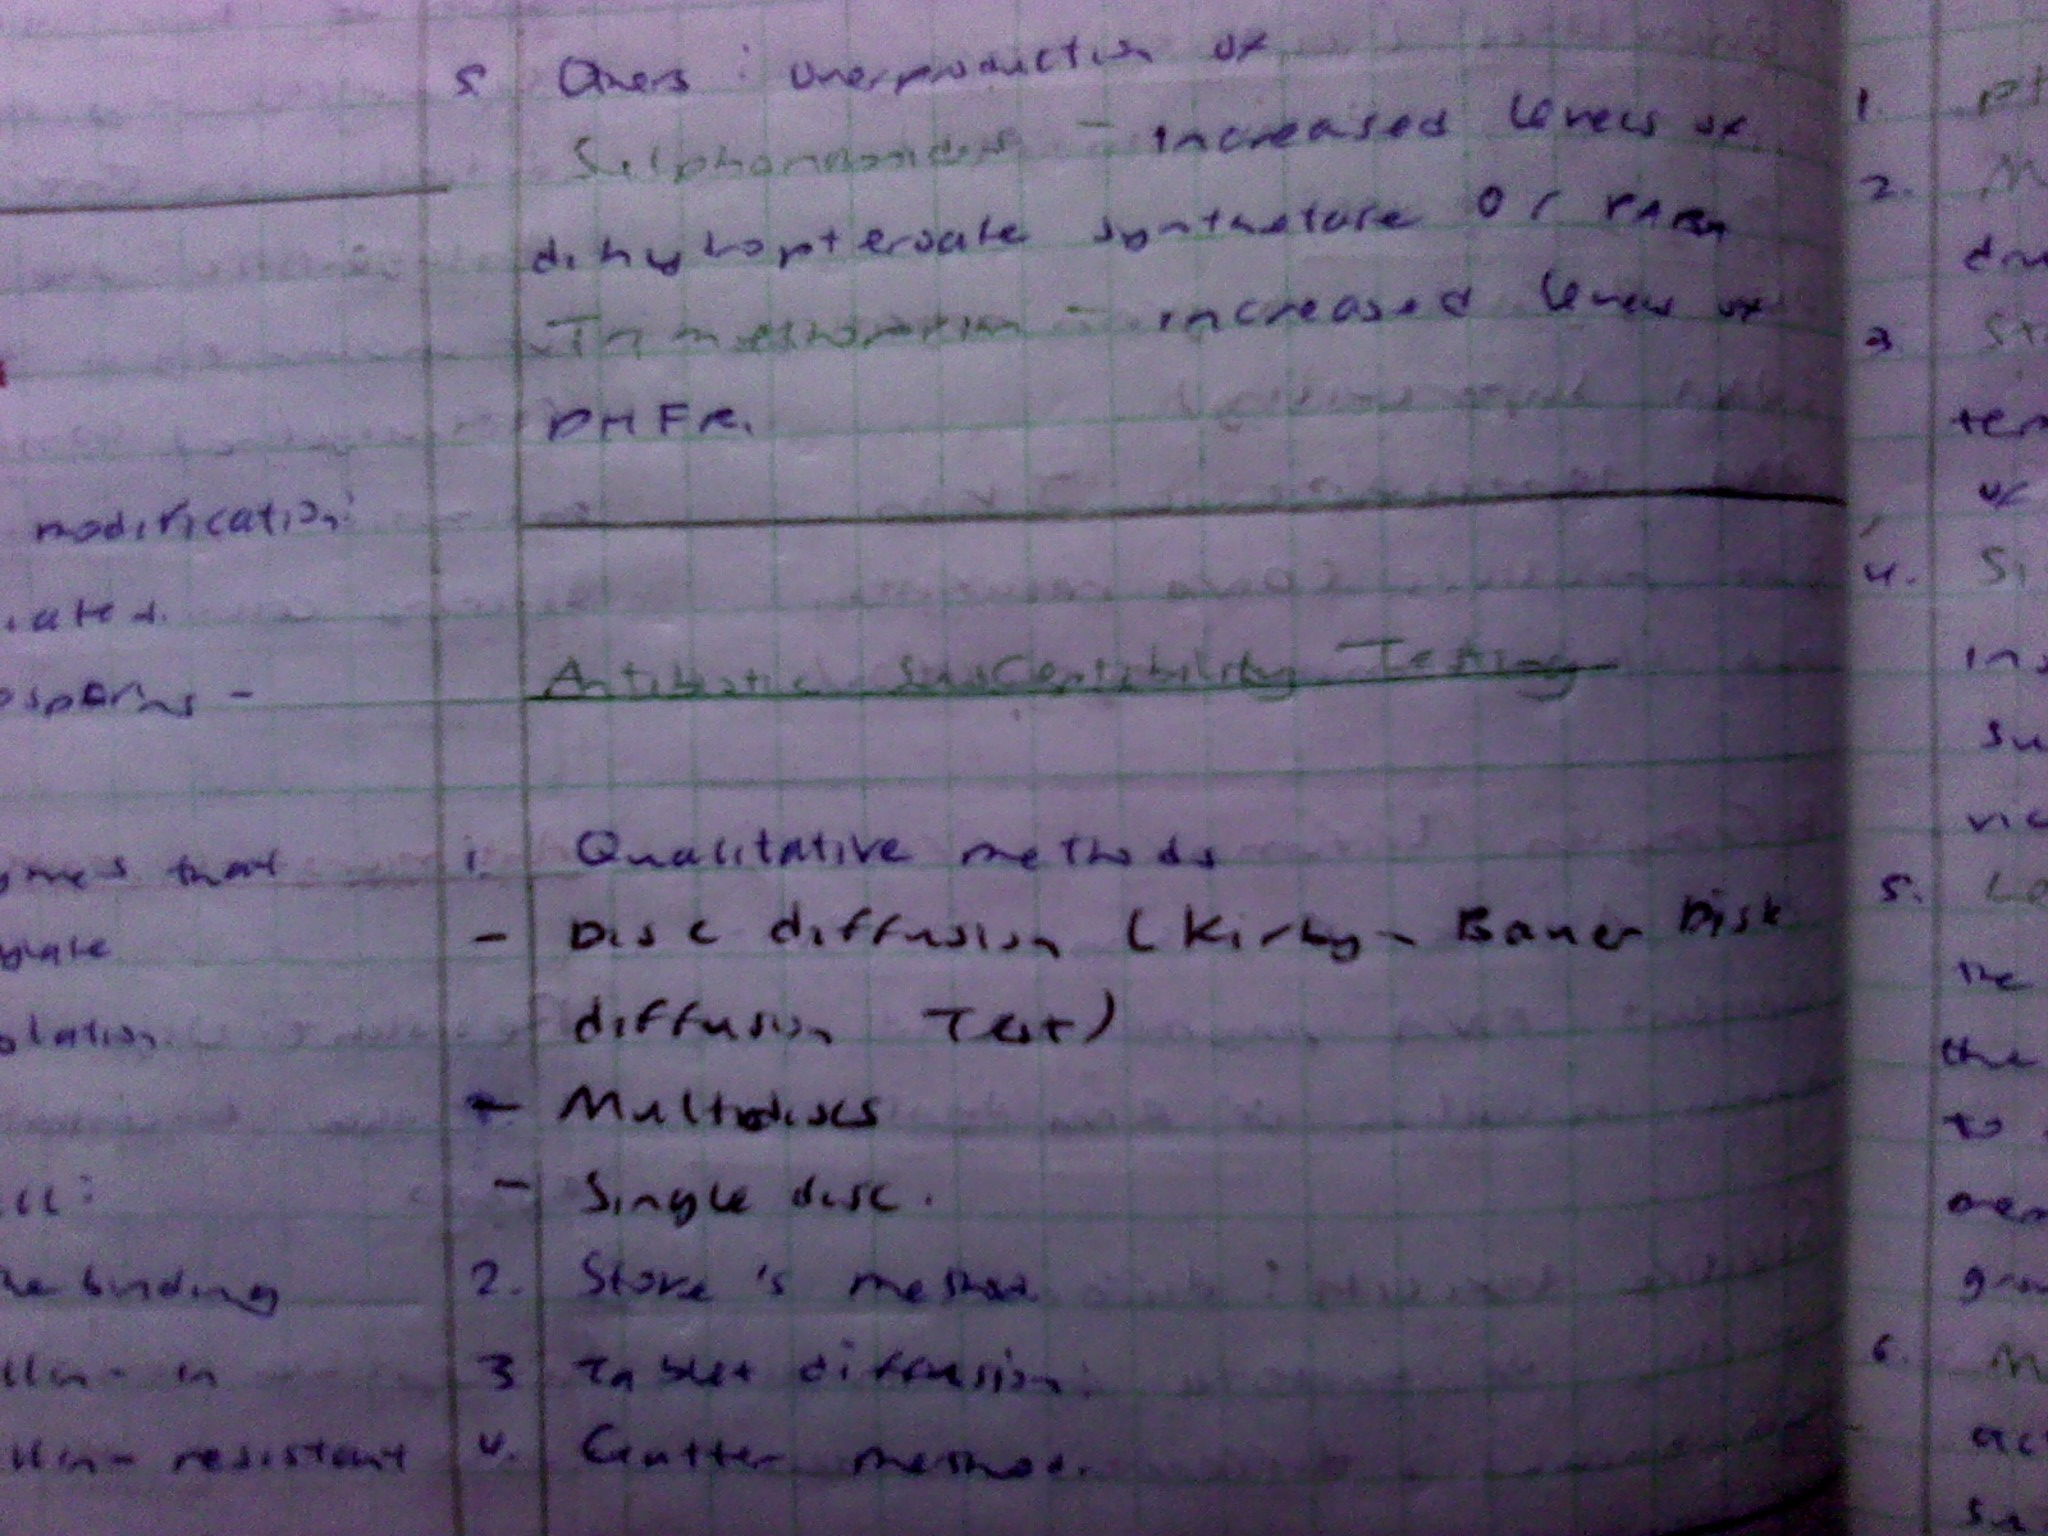 modification:
osporins -
that
binding
resistant
5 Others : overproduction of
Sulphonamides - increased levels of
dihydropteroate synthetase or PABA
Trimethoprim - increased levels of
DHFR.
Antibiotic Susceptibility Testing
1. Qualitative methods
- Disc diffusion (Kirby - Bauer Disk
diffusion Test)
- Multodiscs
- Single disc.
2. Stoke's method
3 Tablet diffusion.
4. Gutter method.
1.
2.
3
of
4.
5.
the
the
to
6.